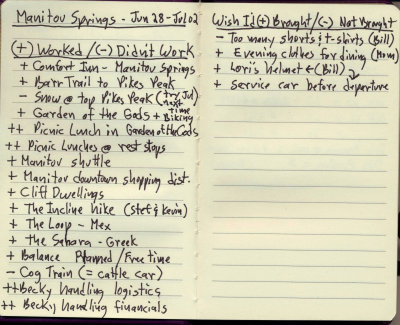 Manitou Springs - Jun 28 - Jul 02
(+) Worked / (-) Didn't Work
+ Comfort Inn - Manitou Springs
+ Barr Trail to Pikes Peak
- Snow @ top Pikes Peak (try Jul next time)
+ Garden of the Gods + Biking
++ Picnic Lunch in Garden of the Gods
++ Picnic Lunches @ rest stops
+ Manitou shuttle
+ Manitou downtown shopping dist.
+ Cliff Dwellings
+ The Incline hike (Stef & Kevin)
+ The Loop - Mex
+ the Sahara - Greek
+ Balance Planned / Free time
- Cog Train (= cattle car)
++ Becky handling logistics
++ Becky handling financials
Wish I'd (+) Brought / (-) Not Brought
- Too many shorts & t-shirts (Bill)
+ Evening clothes for dining (Mom)
+ Lori's helmet ← (Bill)
+ Service car before departure